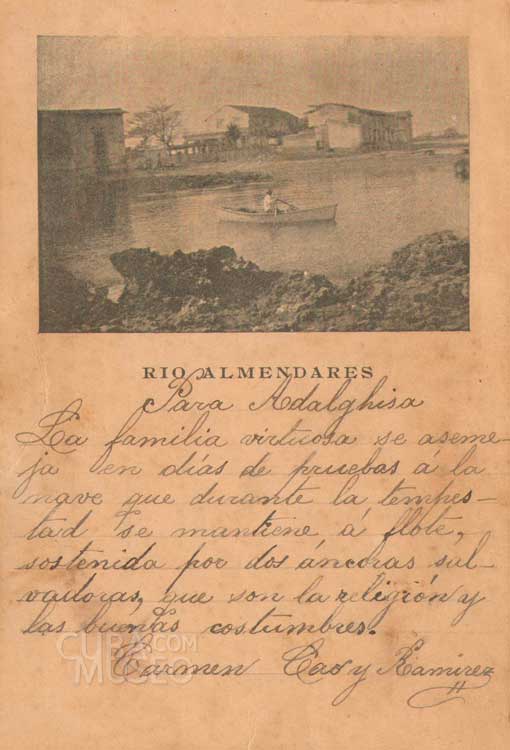 RIO ALMENDARES
Para Adalghisa
La familia virtuosa se aseme-
ja en días de pruebas á la
nave que durante la tempes-
tad se mantiene á flote,
sostenida por dos áncoras sal-
vadoras, que son la religión y
las buenas costumbres.
CUBA.COM
MUSEO
Carmen Cao y Ramirez